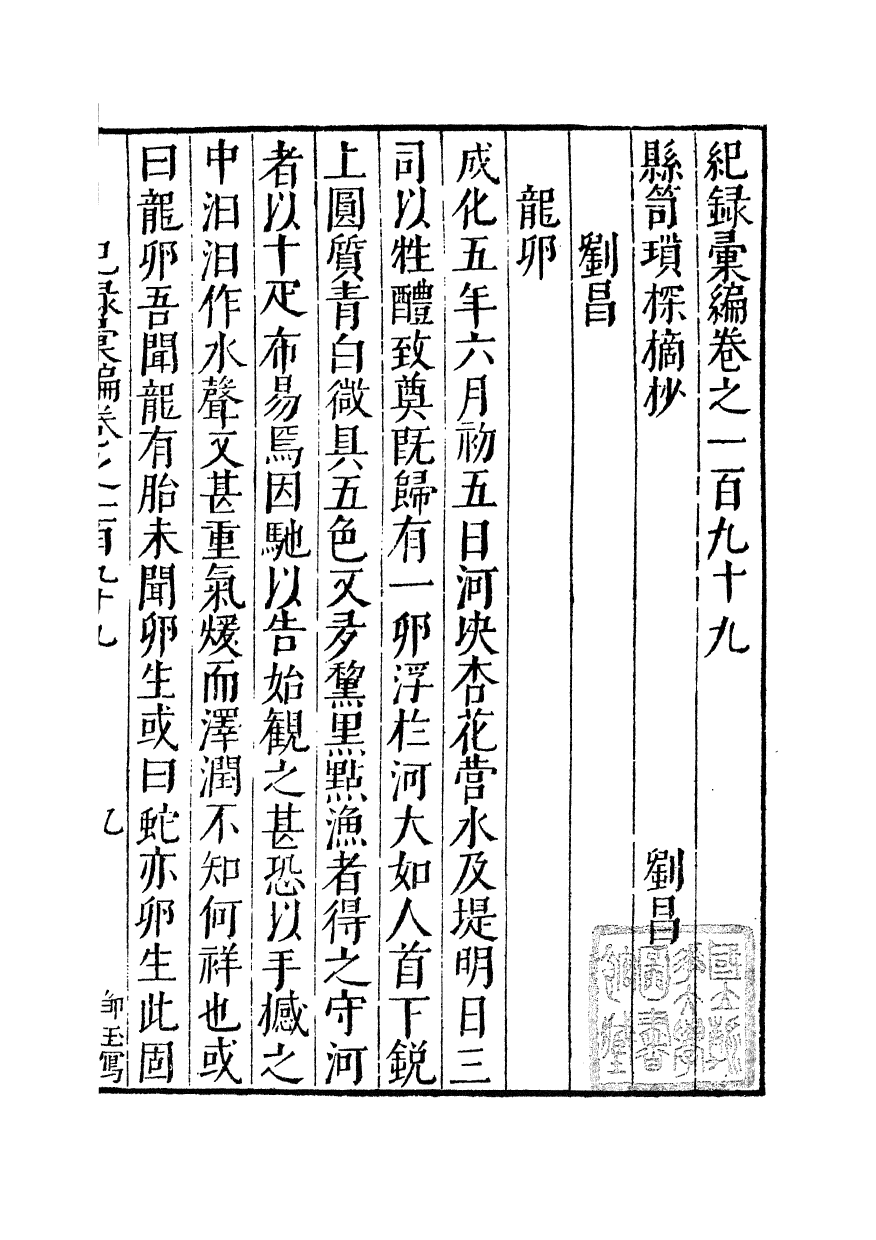 紀録彙編卷之一百九十九
縣笥瑣探摘抄　　劉昌
劉昌
龍卵
成化五年六月初五日河決杏花營水及堤明日三
司以牲醴致奠既歸有一卵浮於河大如人首下鋭
上圓質青白微具五色文多黧黒點漁者得之守河
者以十疋布易焉因馳以告始観之甚恐以手撼之
中汩汩作水聲又甚重氣煖而澤潤不知何祥也或
曰龍卵吾聞龍有胎未聞卵生或曰蛇亦卵生此固
紀録彙編卷之一百九十九　　乙　　鄒玉寫